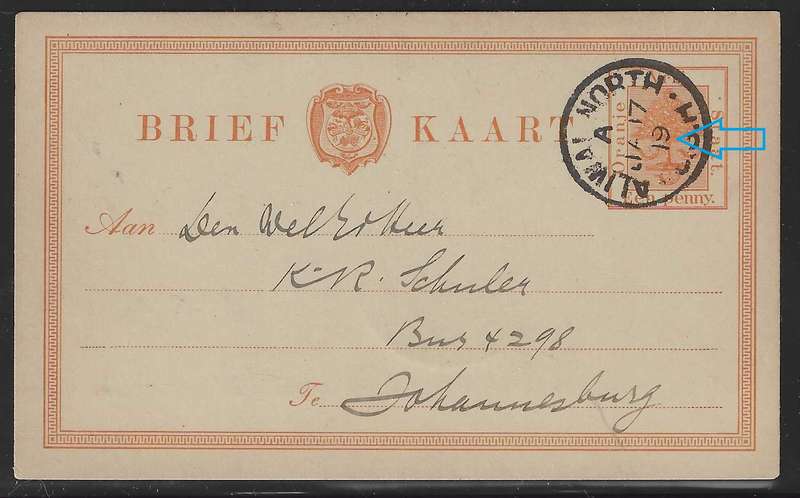 BRIEF KAART
Oranje Staat.
Een penny.
ALIWAL NORTH
A
JA 17
19
Aan Den Wel Ed Heer
K.R. Schuler
Bus 4298
Te Johannesburg